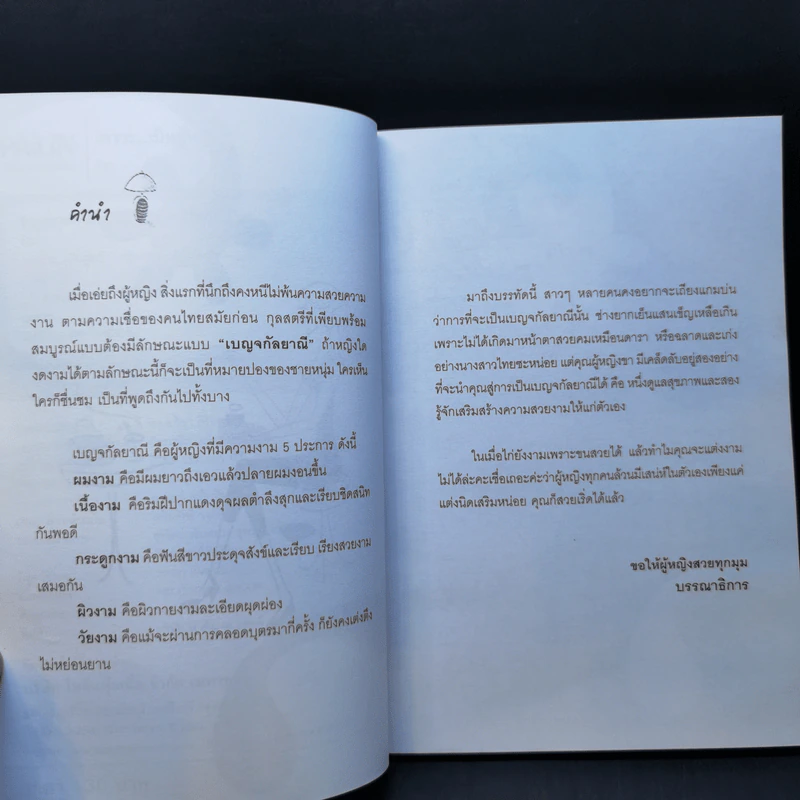 คำนำ
เมื่อเอ่ยถึงผู้หญิง สิ่งแรกที่นึกถึงคงหนีไม่พ้นความสวยความ
งาม ตามความเชื่อของคนไทยสมัยก่อน กุลสตรีที่เพียบพร้อม
สมบูรณ์แบบต้องมีลักษณะแบบ “เบญจกัลยาณี” ถ้าหญิงใด
งดงามได้ตามลักษณะนี้ก็จะเป็นที่หมายปองของชายหนุ่ม ใครเห็น
ใครก็ชื่นชม เป็นที่พูดถึงกันไปทั้งบาง
เบญจกัลยาณี คือผู้หญิงที่มีความงาม 5 ประการ ดังนี้
ผมงาม คือมีผมยาวถึงเอวแล้วปลายผมงอนขึ้น
เนื้องาม คือริมฝีปากแดงดุจผลตำลึงสุกและเรียบชิดสนิท
กันพอดี
กระดูกงาม คือฟันสีขาวประดุจสังข์และเรียบ เรียงสวยงาม
เสมอกัน
ผิวงาม คือผิวกายงามละเอียดผุดผ่อง
วัยงาม คือแม้จะผ่านการคลอดบุตรมากี่ครั้ง ก็ยังคงเต่งตึง
ไม่หย่อนยาน
มาถึงบรรทัดนี้ สาวๆ หลายคนคงอยากจะเถียงแกมบ่น
ว่าการที่จะเป็นเบญจกัลยาณีนั้น ช่างยากเย็นแสนเข็ญเหลือเกิน
เพราะไม่ได้เกิดมาหน้าตาสวยคมเหมือนดารา หรือฉลาดและเก่ง
อย่างนางสาวไทยซะหน่อย แต่คุณผู้หญิงขา มีเคล็ดลับอยู่สองอย่าง
ที่จะนำคุณสู่การเป็นเบญจกัลยาณีได้ คือ หนึ่งดูแลสุขภาพและสอง
รู้จักเสริมสร้างความสวยงามให้แก่ตัวเอง
ในเมื่อไก่ยังงามเพราะขนสวยได้ แล้วทำไมคุณจะแต่งงาม
ไม่ได้ล่ะคะเชื่อเถอะค่ะว่าผู้หญิงทุกคนล้วนมีเสน่ห์ในตัวเองเพียงแค่
แต่งนิดเสริมหน่อย คุณก็สวยเริ่ดได้แล้ว
ขอให้ผู้หญิงสวยทุกมุม
บรรณาธิการ